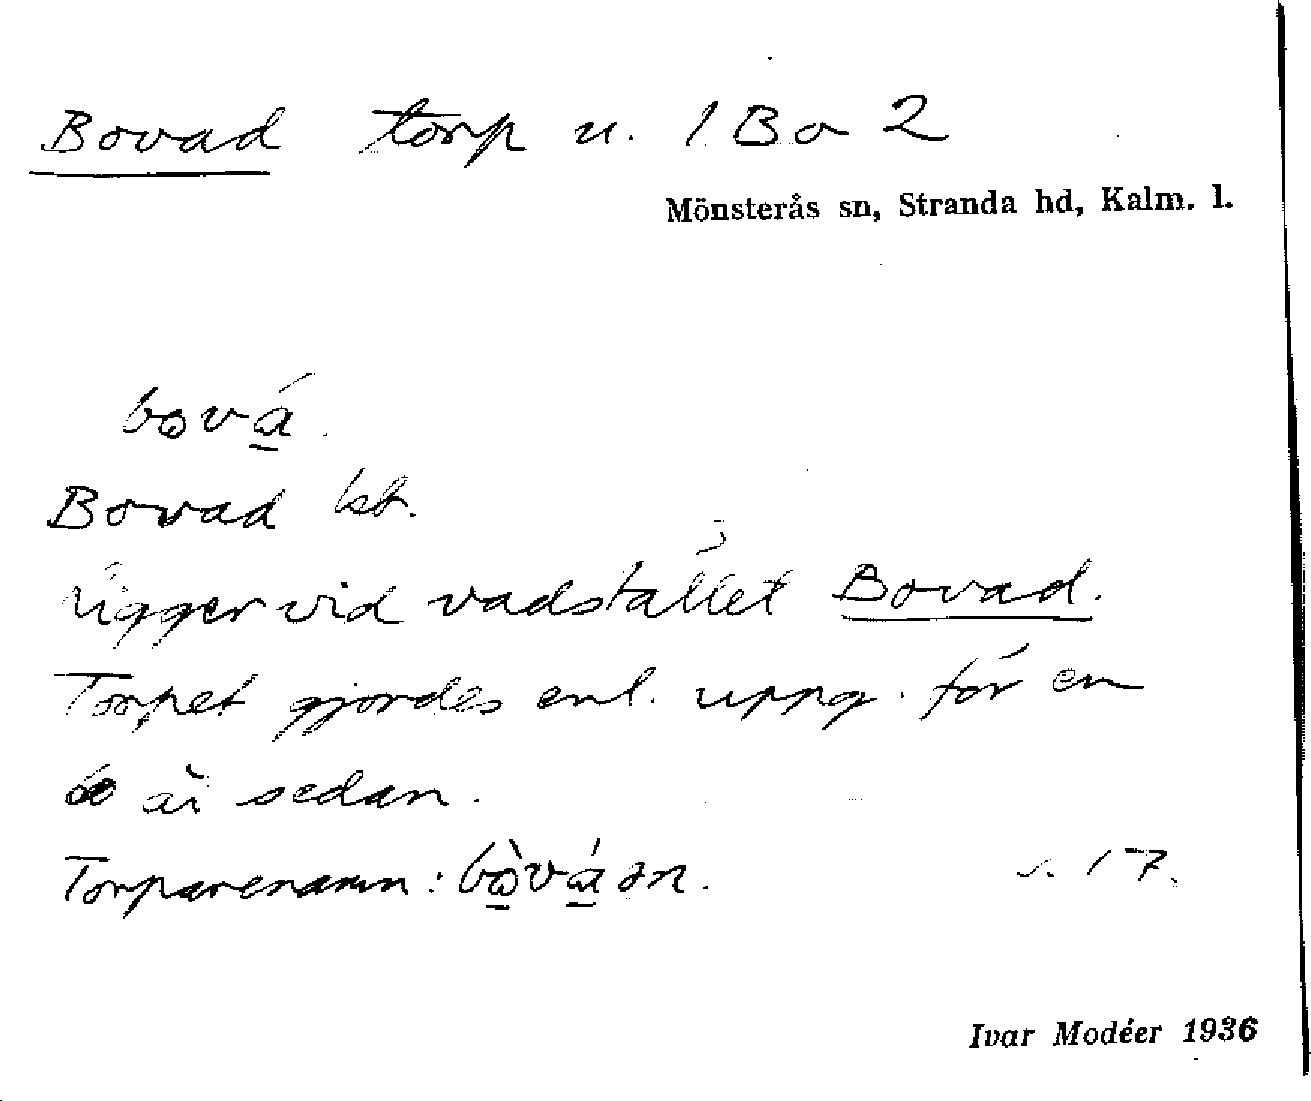 Bovad torp u. 1 Bo 2
Mönsterås sn, Stranda hd, Kalm. l.
bová.
Bovad kt.
ligger vid vadstället Bovad.
Torpet gjordes enl. uppg. för en
60 år sedan.
Torparenamn: bòváən.
s. 17.
Ivar Modéer 1936